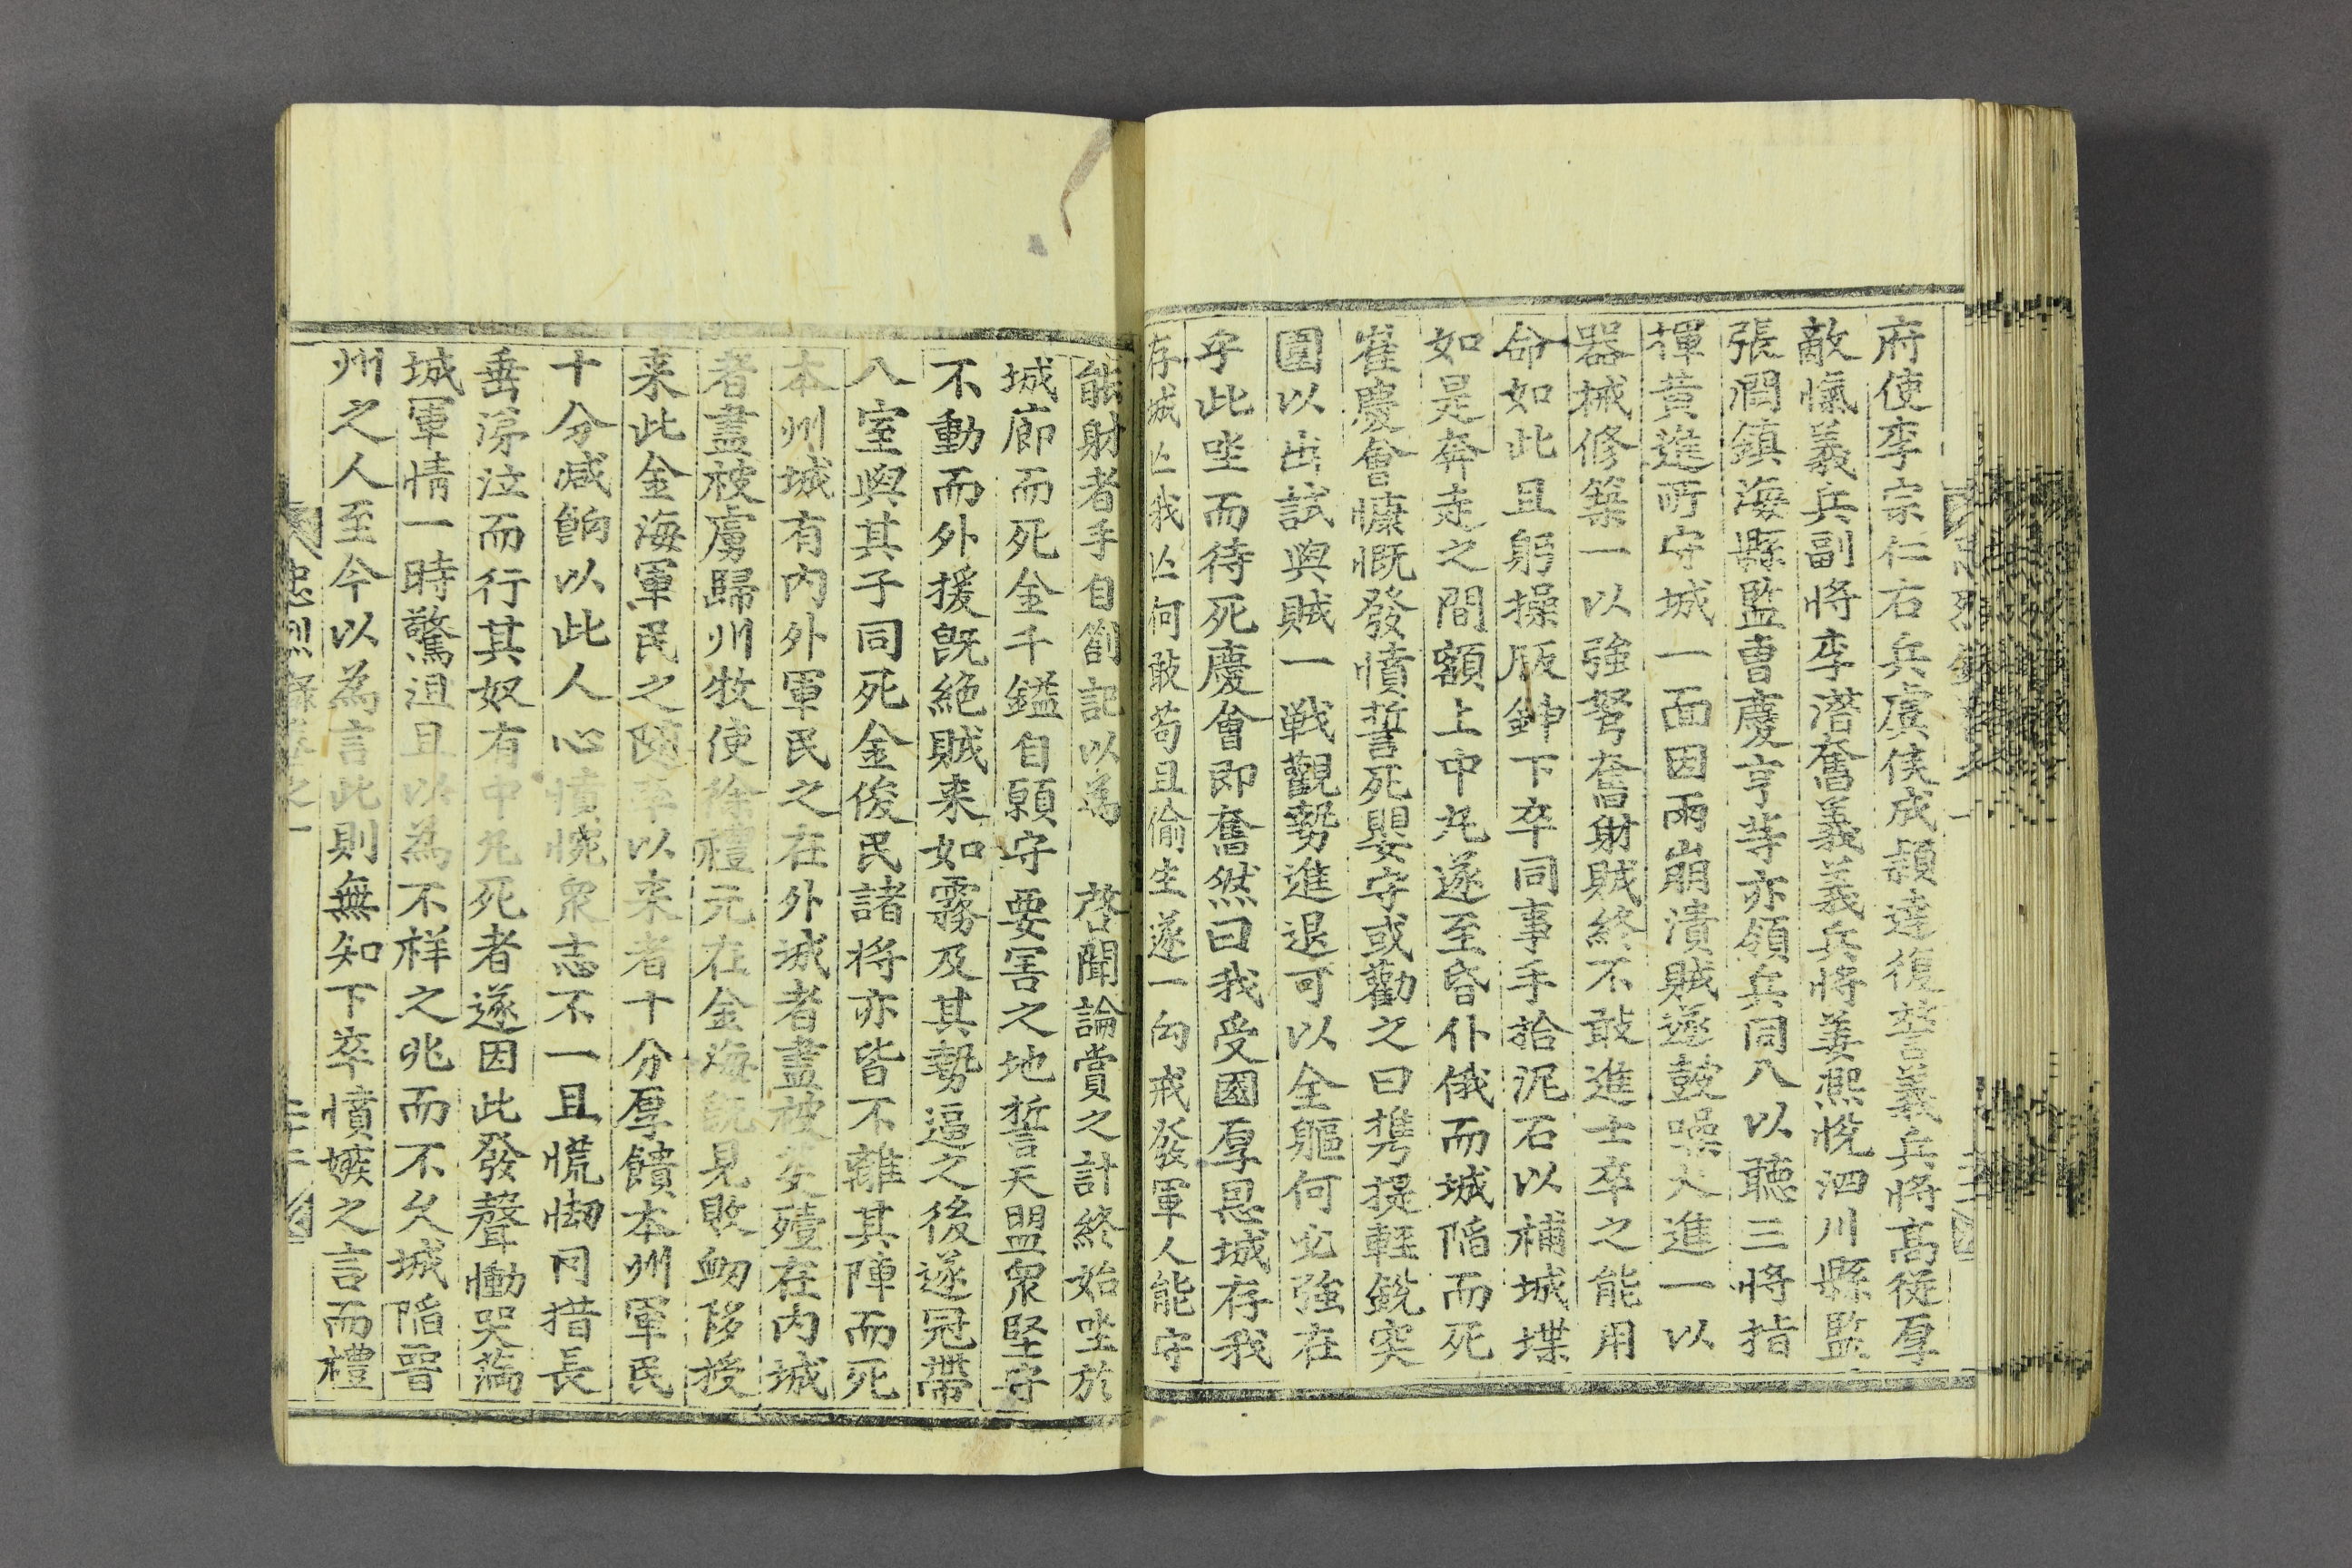 府使李宗仁右兵虞侯成頴達復讐義兵將高從厚
敵愾義兵副將李潛奮義義兵將姜熙悅泗川縣監
張潤鎮海縣監曹慶亨等亦領兵同入以聽三將指
揮黃進所守城一面因雨崩潰賊遂鼓噪大進一以
器械修築一以強弩奮射賊終不敢進士卒之能用
命如此且躬操版鍤下卒同事手拾泥石以補城堞
如是奔走之間額上中丸遂至昏仆俄而城陷而死
崔慶會慷慨發憤誓死嬰守或勸之曰携提輕銳突
圍以出試與賊一戦觀勢進退可以全軀何必強在
乎此坐而待死慶會即奮然曰我受國厚恩城存我
存城亾我亾何敢苟且偷生遂一向戒發軍人能守
能射者手自劄記以為 啓聞論賞之計終始坐於
城廊而死金千鎰自願守要害之地誓天盟衆堅守
不動而外援旣絶賊来如霧及其勢逼之後遂冠帶
入室與其子同死金俊民諸將亦皆不離其陣而死
本州城有內外軍民之在外城者盡被芟殪在內城
者盡被虜歸州牧使徐禮元在金海旣見敗衂移授
来此金海軍民之隨率以来者十分厚饋本州軍民
十分减餉以此人心憤惋衆志不一且慌㤼罔措長
垂涕泣而行其奴有中丸死者遂因此發聲慟哭滿
城軍情一時驚沮且以為不祥之兆而不久城陷晋
州之人至今以為言此則無知下卒憤嫉之言而禮
忠烈錄卷之一
二十二